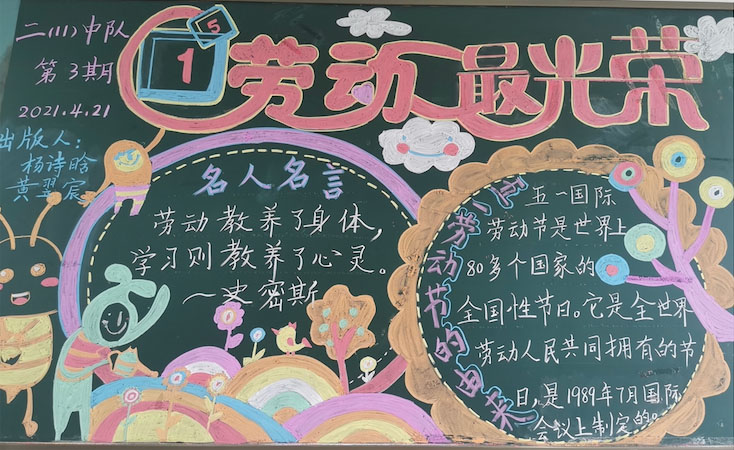 二(11)中队
第3期
2021.4.21
出版人:
杨诗晗
黄翌宸
5
1
劳动最光荣
名人名言
劳动教养了身体,
学习则教养了心灵。
—史密斯
五一劳动节的由来
五一国际
劳动节是世界上
80多个国家的
全国性节日。它是全世界
劳动人民共同拥有的节
日,是1989年7月国际
会议上制定的。